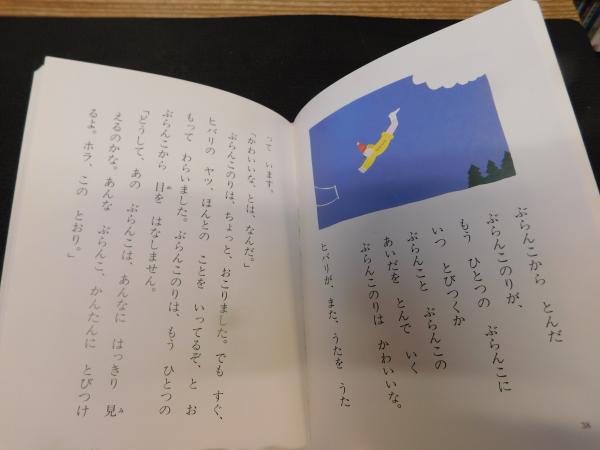 ぶらんこから とんだ
ぶらんこのりが、
もう ひとつの ぶらんこに
いつ とびつくか
ぶらんこと ぶらんこの
あいだを とんで いく
ぶらんこのりは かわいいな。
ヒバリが、また、うたを うた
38
って います。
「かわいいな、とは、なんだ。」
ぶらんこのりは、ちょっと、おこりました。でも すぐ、
ヒバリの ヤツ、ほんとの ことを いってるぞ、と お
もって わらいました。ぶらんこのりは、もう ひとつの
ぶらんこから 目を はなしません。
「どうして、あの ぶらんこは、あんなに はっきり 見
えるのかな。あんな ぶらんこ、かんたんに とびつけ
るよ。ホラ、この とおり。」